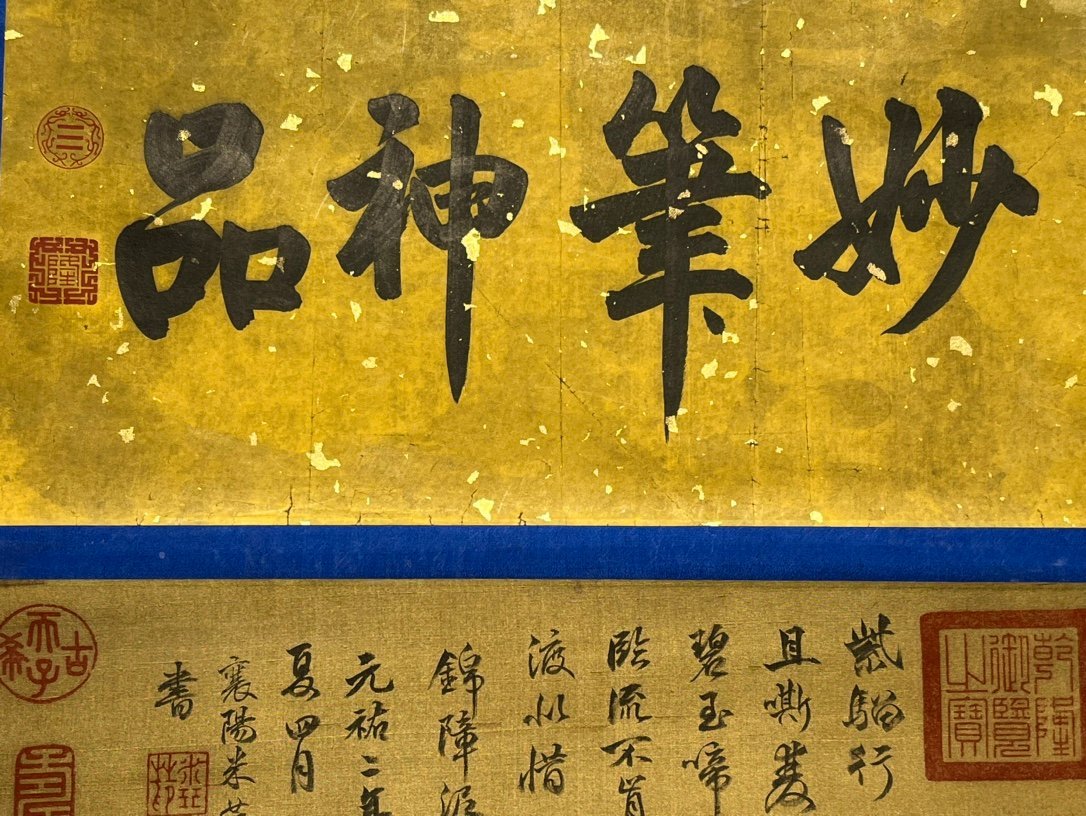 妙筆神品
乾隆御覽之寶
紫騮行
且嘶雙
碧玉蹄
臨流不肯
渡似惜
錦障泥
元祐二年
夏四月
襄陽米芾
書
古希天子